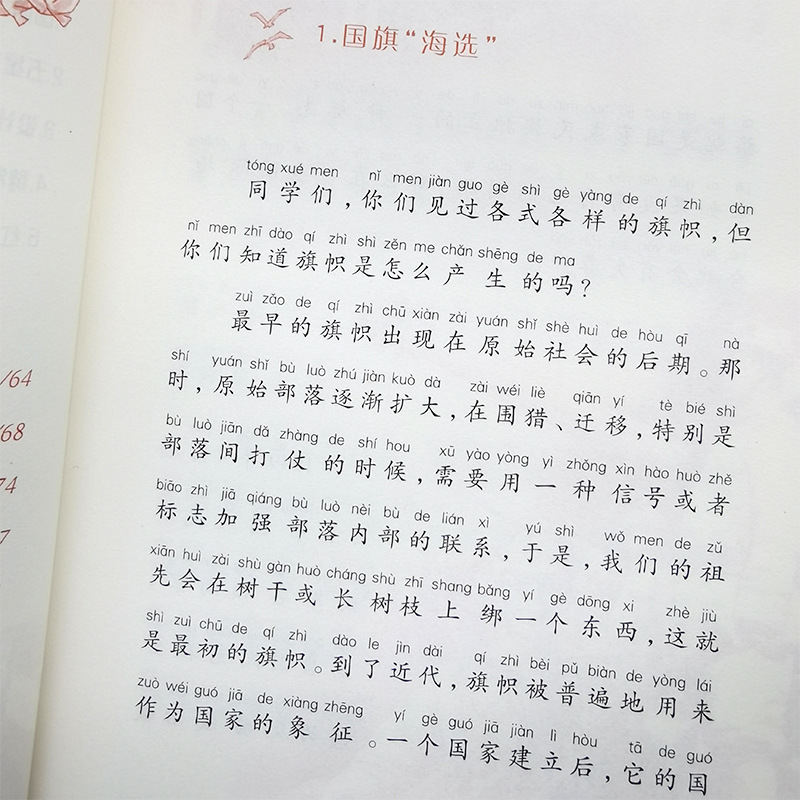 1.国旗“海选”
tóng xué men nǐ men jiàn guo gè shì gè yàng de qí zhì dàn
同学们，你们见过各式各样的旗帜，但
nǐ men zhī dào qí zhì shì zěn me chǎn shēng de ma
你们知道旗帜是怎么产生的吗？
zuì zǎo de qí zhì chū xiàn zài yuán shǐ shè huì de hòu qī nà
最早的旗帜出现在原始社会的后期。那
shí yuán shǐ bù luò zhú jiàn kuò dà zài wéi liè qiān yí tè bié shì
时，原始部落逐渐扩大，在围猎、迁移，特别是
bù luò jiān dǎ zhàng de shí hou xū yào yòng yì zhǒng xìn hào huò zhě
部落间打仗的时候，需要用一种信号或者
biāo zhì jiā qiáng bù luò nèi bù de lián xì yú shì wǒ men de zǔ
标志加强部落内部的联系，于是，我们的祖
xiān huì zài shù gàn huò cháng shù zhī shang bǎng yí gè dōng xi zhè jiù
先会在树干或长树枝上绑一个东西，这就
shì zuì chū de qí zhì dào le jìn dài qí zhì bèi pǔ biàn de yòng lái
是最初的旗帜。到了近代，旗帜被普遍地用来
zuò wéi guó jiā de xiàng zhēng yí gè guó jiā jiàn lì hòu tā de guó
作为国家的象征。一个国家建立后，它的国
/64
/68
74
7